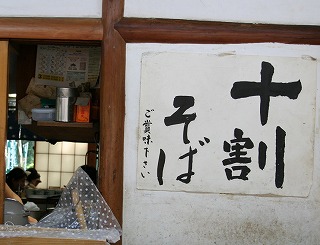 十割
そば
ご賞味下さい